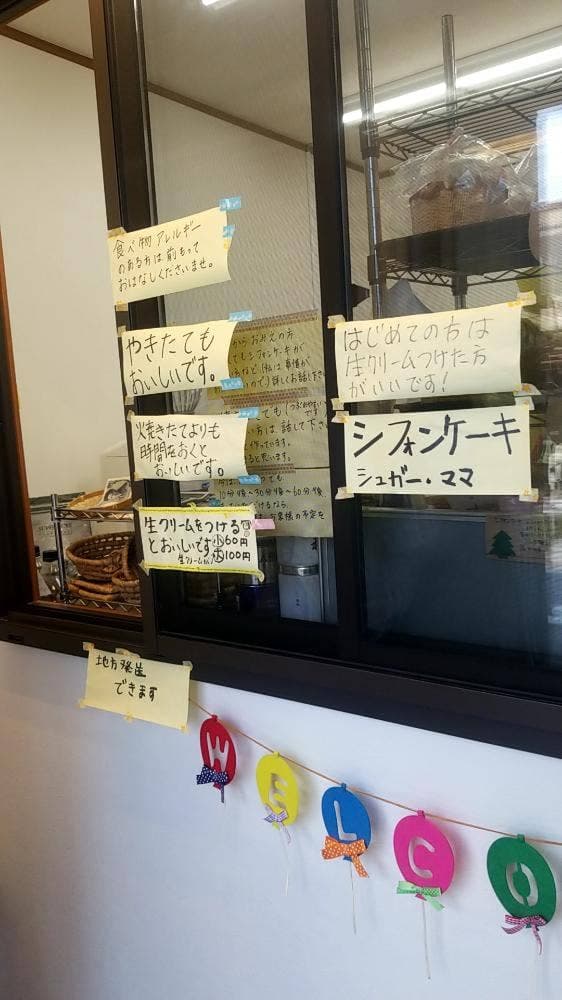 食べ物アレルギー
のある方は前もって
おはなしくださいませ。
やきたても
おいしいです。
火焼きたてよりも
時間をおくと
おいしいです。
生クリームをつける
とおいしいです。小60円
生クリーム 大100円
はじめての方は
生クリームつけた方
がいいです!
シフォンケーキ
シュガー・ママ
でもシフォンケーキが
詳しくお話し下さい
方は話して下さい
作っています。
と思います。
10分後~30分後~60分後
お客様の予定を
地方発送
できます
WELCO